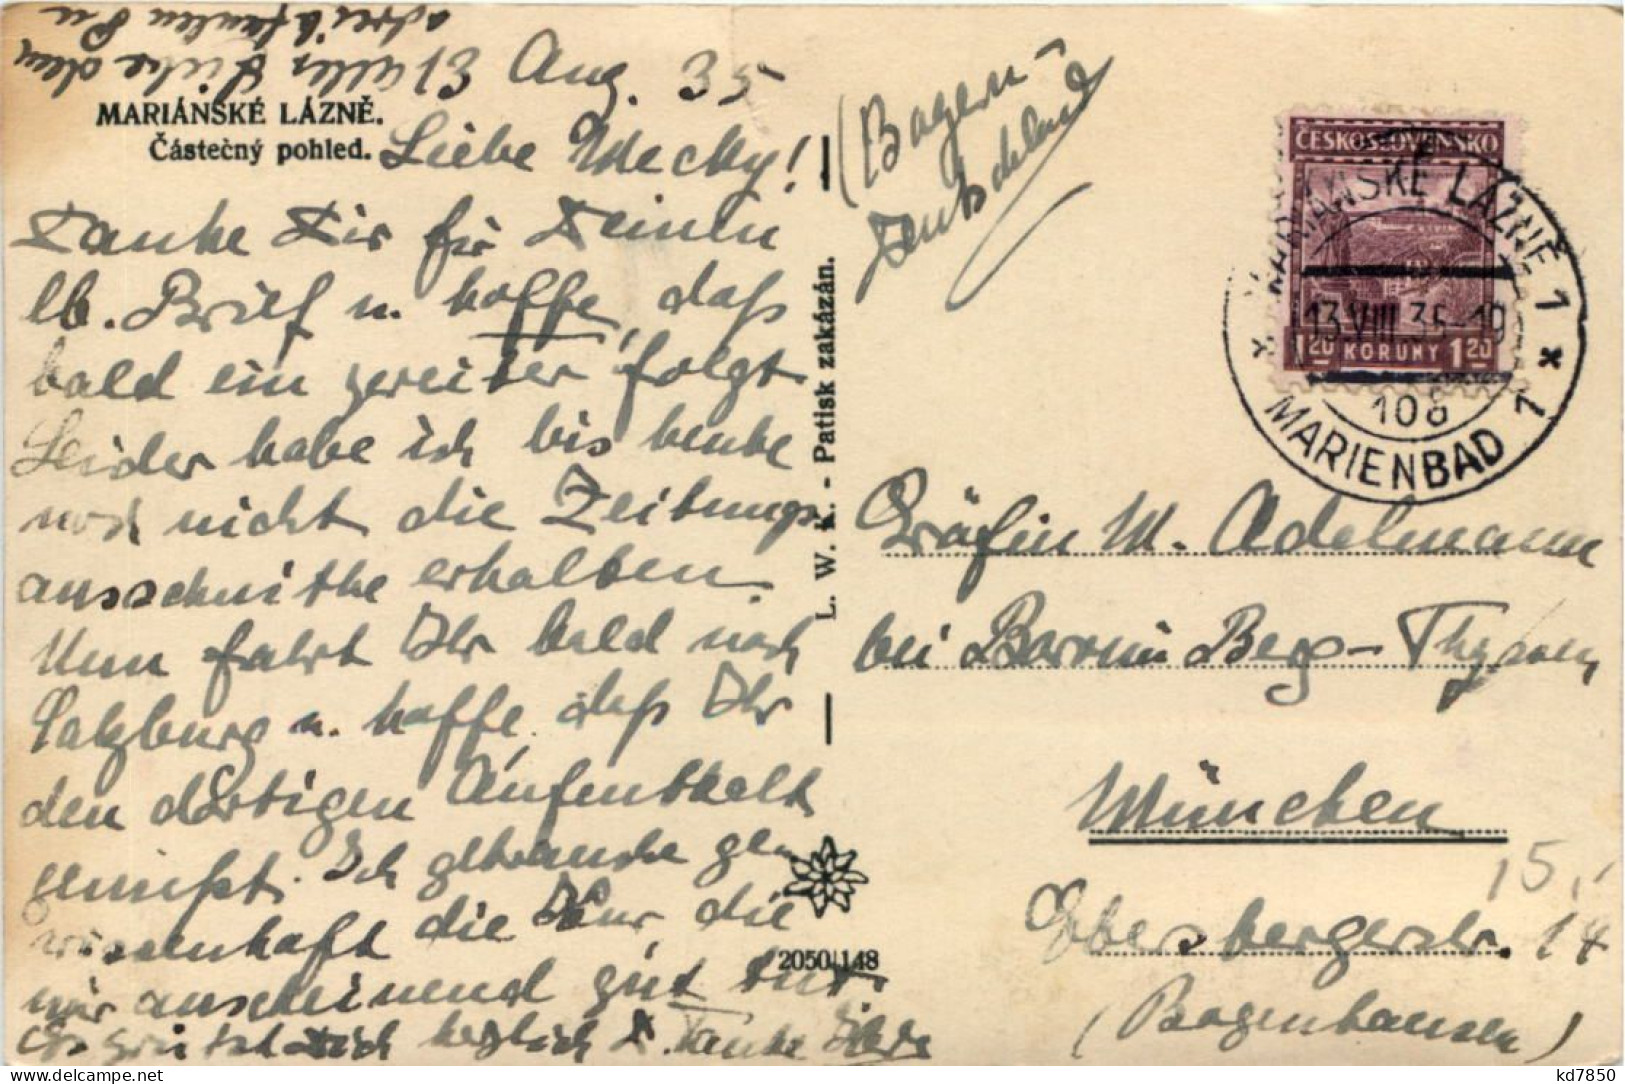 alles Liebe den
13 Aug. 35
MARIÁNSKÉ LÁZNĚ.
Částečný pohled.
Liebe Mecky!
Danke Dir für Deinen
lb. Brief u. hoffe, daß
bald ein zweiter folgt.
Leider habe ich bis heute
noch nicht die Zeitungs
ausschnitte erhalten.
Nun fahrt Ihr bald nach
Salzburg u. hoffe, daß Ihr
den dortigen Aufenthalt
genießt. Ich gebrauche ge
wissenhaft die Kur, die
mir anscheinend gut tut.
Es grüßt Dich herzlich D. Tante
L. W. K. - Patisk zakázán.
2050/148
(Bayern-
Deutschland
ČESKOSLOVENSKO
1.20 KORUNY 1.20
MARIÁNSKÉ LÁZNĚ 1
13.VIII.35-19
108
MARIENBAD 1
Gräfin M. Adelmann
bei Baronin Berg-Thyssen
München
15,-
Ebersbergerstr. 14
(Bogenhausen)
kd7850